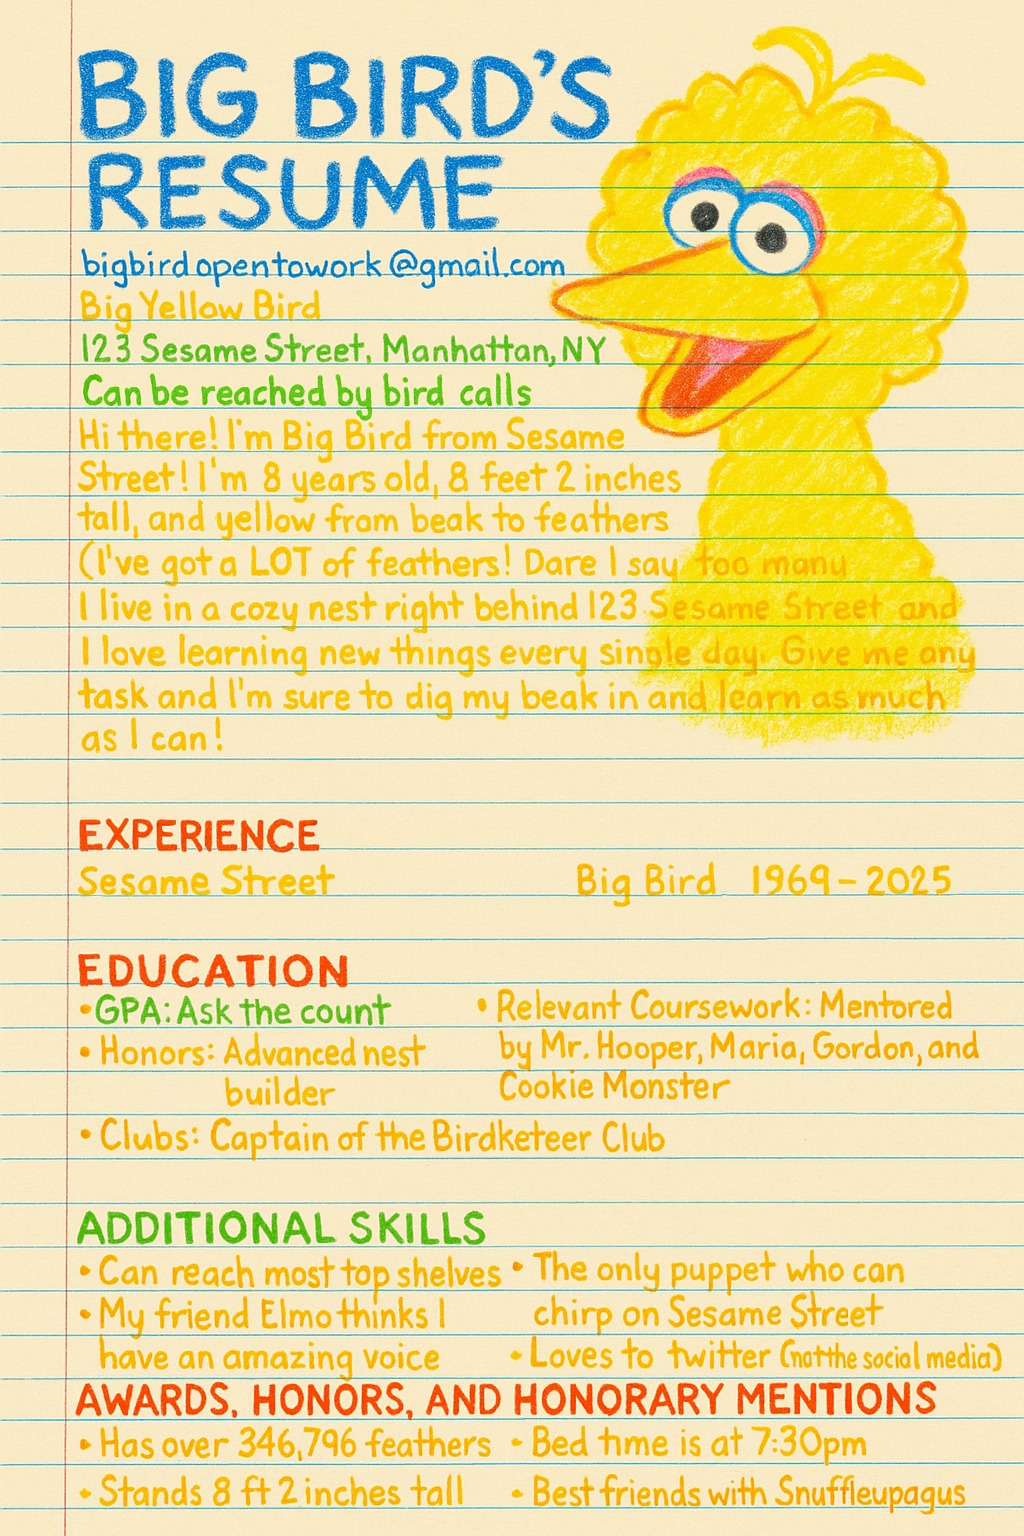 BIG BIRD'S
RESUME
bigbirdopentowork@gmail.com
Big Yellow Bird
123 Sesame Street, Manhattan, NY
Can be reached by bird calls
Hi there! I'm Big Bird from Sesame
Street! I'm 8 years old, 8 feet 2 inches
tall, and yellow from beak to feathers
(I've got a LOT of feathers! Dare I say too many
I live in a cozy nest right behind 123 Sesame Street and
I love learning new things every single day. Give me any
task and I'm sure to dig my beak in and learn as much
as I can!
EXPERIENCE
Sesame Street Big Bird 1969-2025
EDUCATION
•GPA: Ask the count
• Honors: Advanced nest
builder
• Relevant Coursework: Mentored
by Mr. Hooper, Maria, Gordon, and
Cookie Monster
• Clubs: Captain of the Birdketeer Club
ADDITIONAL SKILLS
• Can reach most top shelves
• My friend Elmo thinks I
have an amazing voice
• The only puppet who can
chirp on Sesame Street
• Loves to twitter (not the social media)
AWARDS, HONORS, AND HONORARY MENTIONS
• Has over 346,796 feathers
• Stands 8 ft 2 inches tall
• Bed time is at 7:30pm
• Best friends with Snuffleupagus